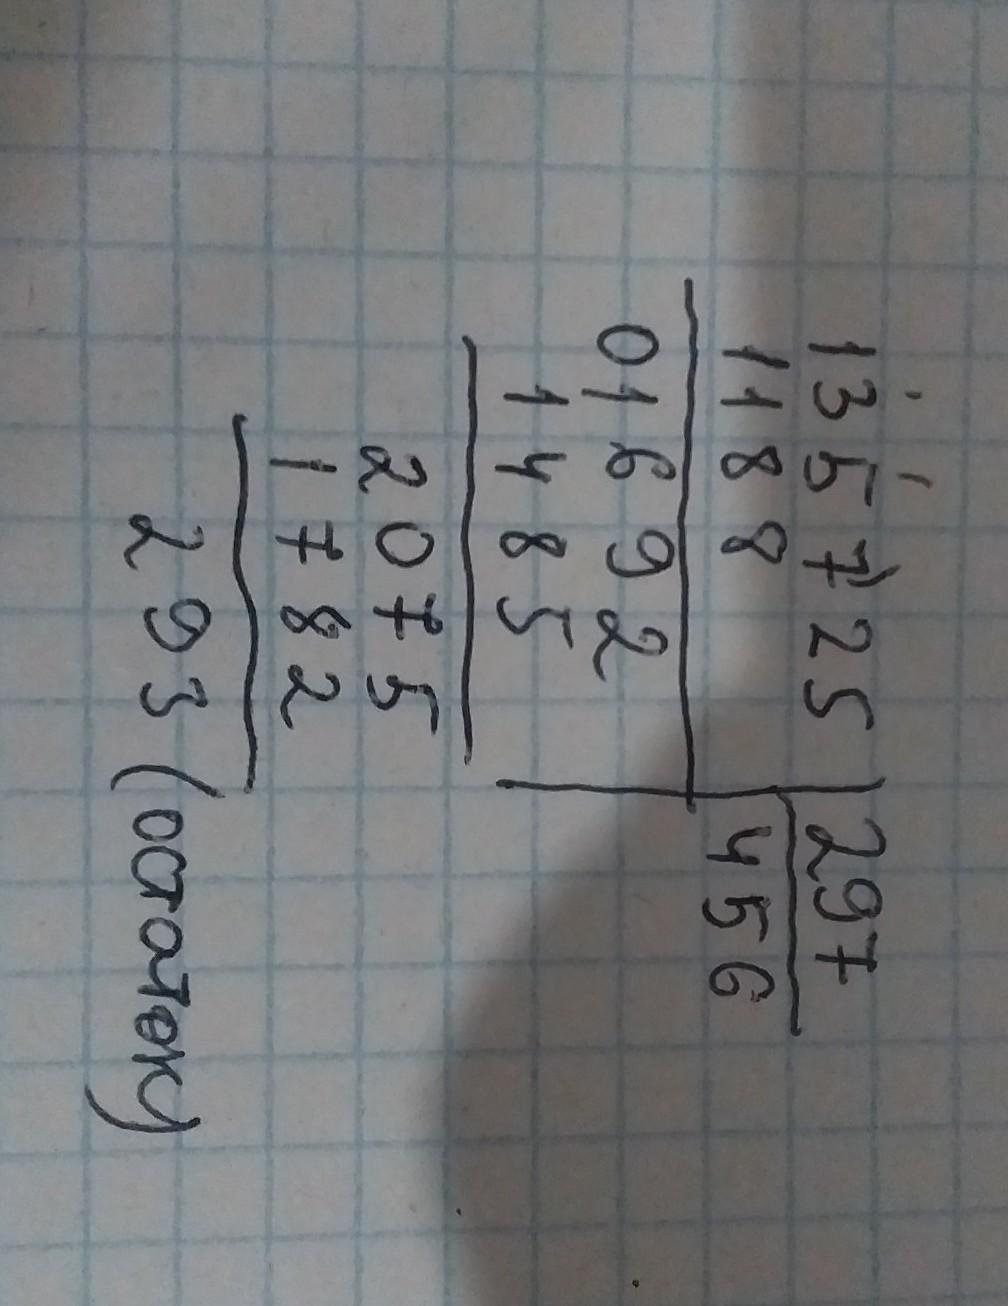 135725 297
1188 456
01692
1485
2075
1782
293 (остаток)